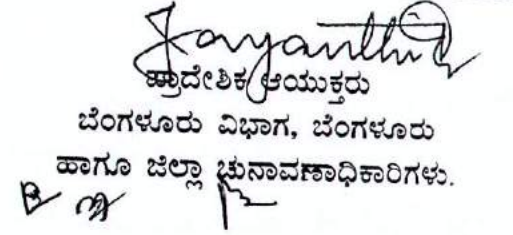 Jayanthi
ಪ್ರಾದೇಶಿಕ ಆಯುಕ್ತರು
ಬೆಂಗಳೂರು ವಿಭಾಗ, ಬೆಂಗಳೂರು
ಹಾಗೂ ಜಿಲ್ಲಾ ಚುನಾವಣಾಧಿಕಾರಿಗಳು.